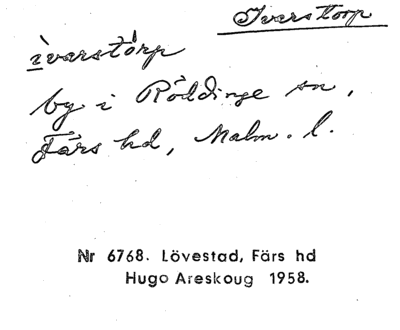 Ivarstorp
ivarstòrp
by i Röddinge sn,
Färs hd, Malm. l.
Nr 6768. Lövestad, Färs hd
Hugo Areskoug 1958.